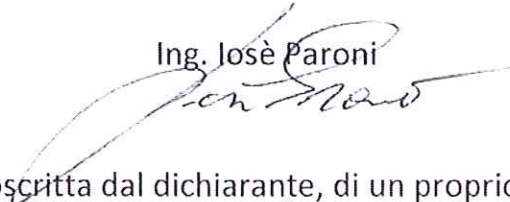 Ing. Iosè Paroni
oscritta dal dichiarante, di un proprio